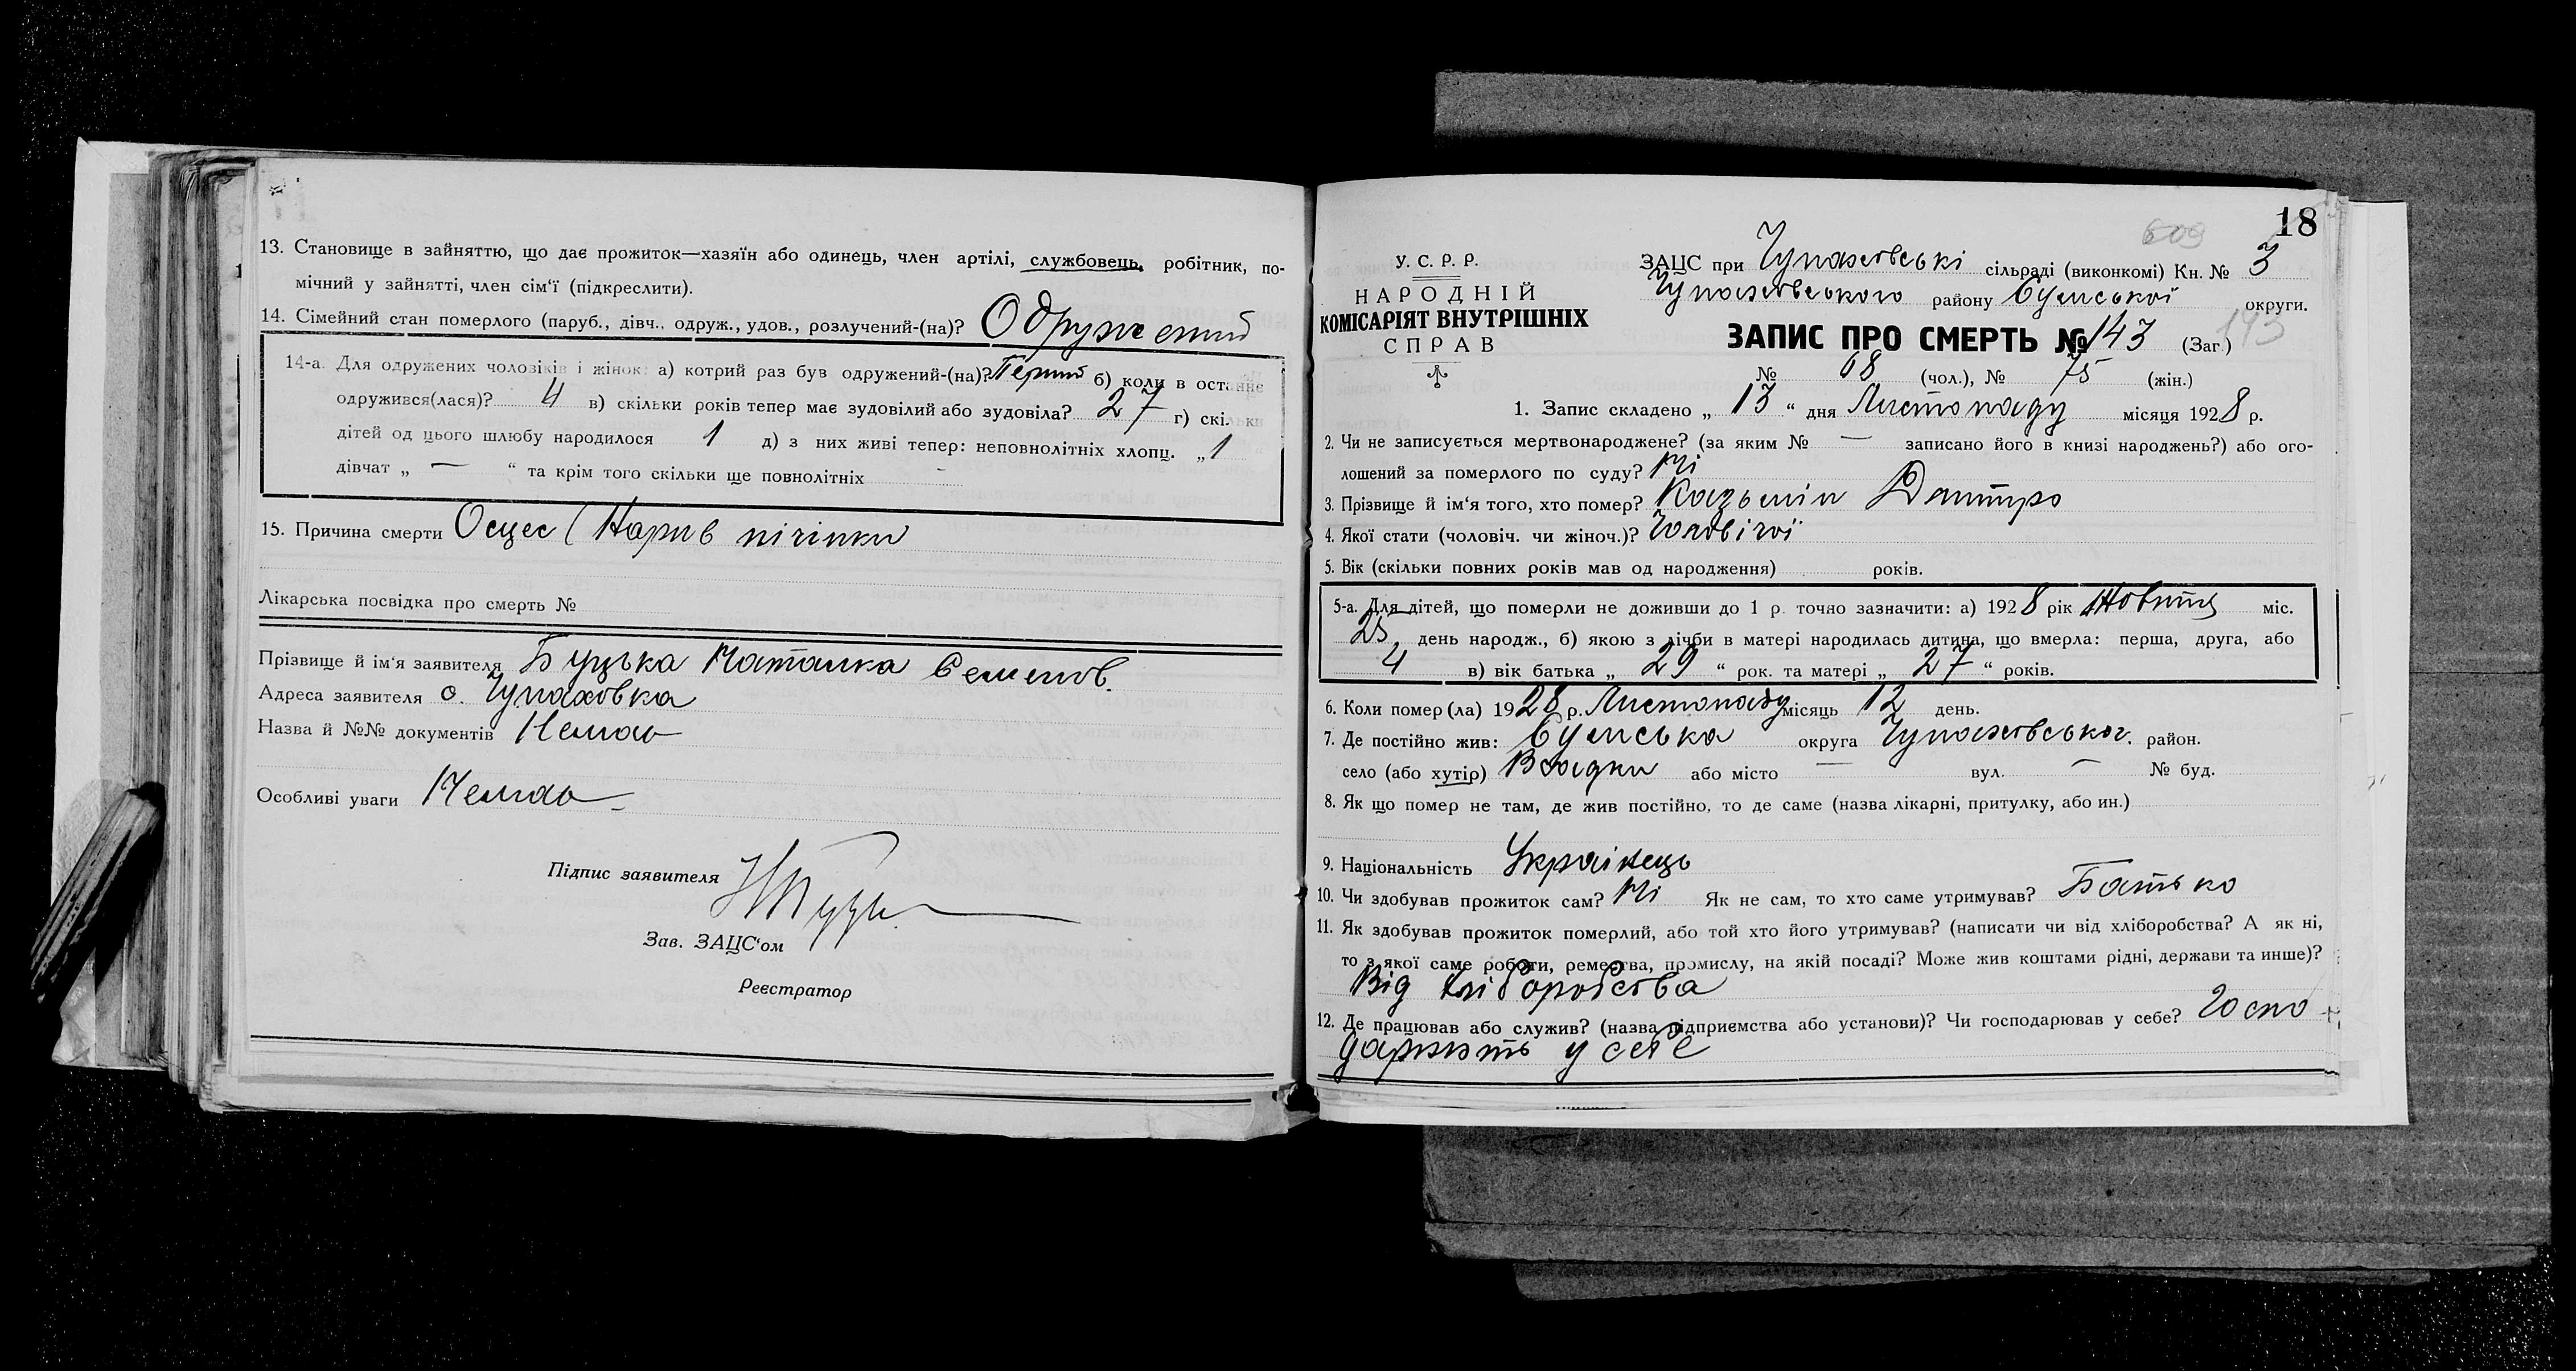 13. Становище в зайняттю, що дає прожиток—хазяїн або одинець, член артілі, службовець, робітник, по-
мічний у зайнятті, член сім'ї (підкреслити).
14. Сімейний стан померлого (паруб., дівч., одруж., удов., розлучений-(на)? Одружений
14-а. Для одружених чоловіків і жінок: а) котрий раз був одружений-(на)? Перший б) коли в останнє
одружився(лася)? 4 в) скільки років тепер має зудовілий або зудовіла? 27 г) скільки
дітей од цього шлюбу народилося 1 д) з них живі тепер: неповнолітніх хлопц. „ 1 “
дівчат „ — “ та крім того скільки ще повнолітніх -
15. Причина смерти Осцес ( Нарив пічінки
Лікарська посвідка про смерть №
Прізвище й ім'я заявителя Буцька Наталка Семенов.
Адреса заявителя с. Чупаховка
Назва й №№ документів Немає
Особливі уваги Немає
Підпис заявителя
Зав. ЗАЦС'ом
Реєстратор
18
609
У. С. Р. Р.
НАРОДНІЙ
КОМІСАРІЯТ ВНУТРІШНІХ
СПРАВ
ЗАЦС при Чупахівські сільраді (виконкомі) Кн. № 3
Чупахівського району Сумської округи.
ЗАПИС ПРО СМЕРТЬ № 143 (Заг.) 143
№ 68 (чол.), № 75 (жін.)
1. Запис складено „ 13 “ дня Листопаду місяця 1928 р.
2. Чи не записується мертвонароджене? (за яким № — записано його в книзі народжень?) або ого-
лошений за померлого по суду? Ні
3. Прізвище й ім'я того, хто помер? Казьмін Дмитро
4. Якої стати (чоловіч. чи жіноч.)? Чоловічої
5. Вік (скільки повних років мав од народження) років.
5-а. Для дітей, що померли не доживши до 1 р. точно зазначити: а) 1928 рік Жовтня міс.
25 день народж., б) якою з лічби в матері народилась дитина, що вмерла: перша, друга, або
4 в) вік батька „ 29 “ рок. та матері „ 27 “ років.
6. Коли помер(ла) 1928 р. Листопаду місяць 12 день.
7. Де постійно жив: Сумська округа Чупахівськог. район.
село (або хутір) або місто — вул. — № буд.
8. Як що помер не там, де жив постійно, то де саме (назва лікарні, притулку, або ин.)
9. Національність Українець
10. Чи здобував прожиток сам? Ні Як не сам, то хто саме утримував? Батько
11. Як здобував прожиток померлий, або той хто його утримував? (написати чи від хліборобства? А як ні,
то з якої саме роботи, ремества, промислу, на якій посаді? Може жив коштами рідні, держави та инше)?
Від хліборобства
12. Де працював або служив? (назва підприємства або установи)? Чи господарював у себе? Госпо
дарюють у себе